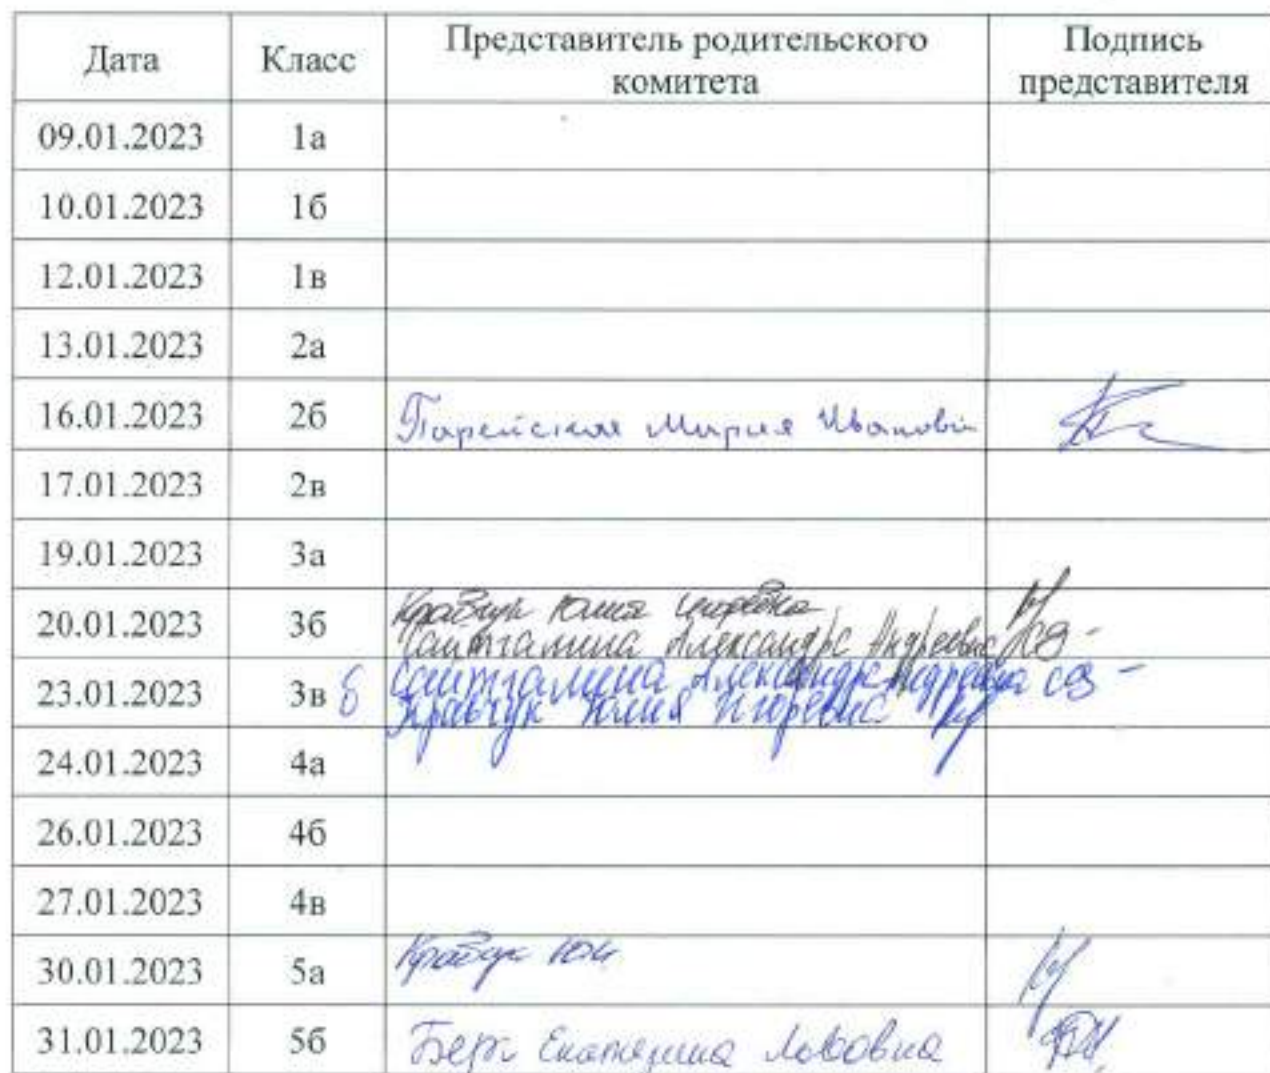 Дата Класс Представитель родительского Подпись
комитета представителя
09.01.2023 1а
10.01.2023 1б
12.01.2023 1в
13.01.2023 2а
16.01.2023 2б Мария
17.01.2023 2в
19.01.2023 3а
Кравчук Юлия Игоревна
20.01.2023 3б Саитгалина Александра
23.01.2023 3в б Саитгалина Александра Андреевна
Кравчук Юлия Игоревна
24.01.2023 4а
26.01.2023 4б
27.01.2023 4в
30.01.2023 5а Кравчук ЮИ
31.01.2023 5б Берг Екатерина Львовна